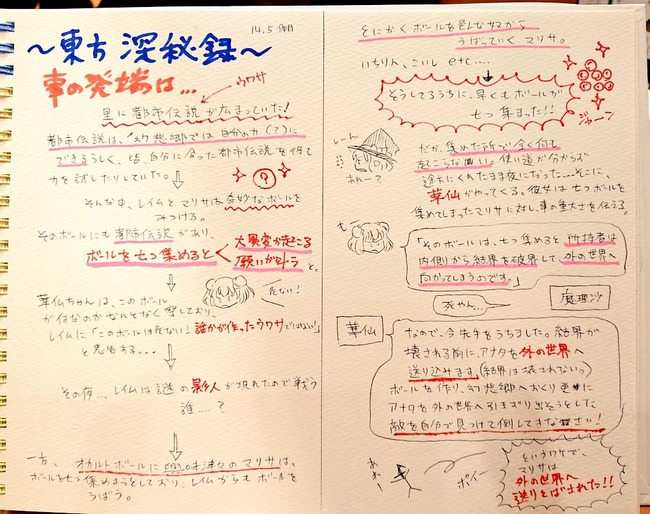 14.5作目
〜東方深秘録〜
事の発端は...
ウワサ
里に都市伝説が広まっていた!
都市伝説は、幻想郷では自分の力(?)に
できるらしく、皆、自分に合った都市伝説を得て
力を試したりしていた。
そんな中、レイムとマリサは奇妙なボールを
みつける。
そのボールにも都市伝説があり、
ボールを七つ集めると
大異変が起こる
願いが叶う
と。
華仙ちゃんは、このボール
が何なのかなんとなく察しており、
レイムに「このボールは危ない!誰かが作ったウワサではない!」
と忠告する...
危ない!
その夜...レイムは謎の影人が現れたので戦う
誰....?
一方、オカルトボールに興味津々のマリサは、
ボールを七つ集めようとしており、レイムからもボールを
うばう。
とにかくボールを色んなヤツから
うばっていくマリサ。
いちりん、こいし etc....
そうしてるうちに、早くもボールが
七つ集まった!!
ジャーン
しーん
あれー?
だが、集めた所で全く何も
起こらない。使い道が分からず
途方にくれたまま夜になった...そこに、
華仙がやってくる。彼女は七つボールを
集めてしまったマリサに対し、事の重大さを伝える。
も
「そのボールは、七つ集めると所持者は
内側から結界を破界して、外の世界へ
向かってしまうのです。」
死やん...
魔理沙
華仙
なので、今先手をうちました。結界が
壊される前に、アナタを外の世界へ
送り込みます(結界は壊されない。)
ボールを作り、幻想郷へおくり更に
アナタを外の世界へ引きずり出そうとした
敵を自分で見つけて倒してきなさい!
というワケで、
マリサは
外の世界へ
送りとばされた!!
あれー
ポイー